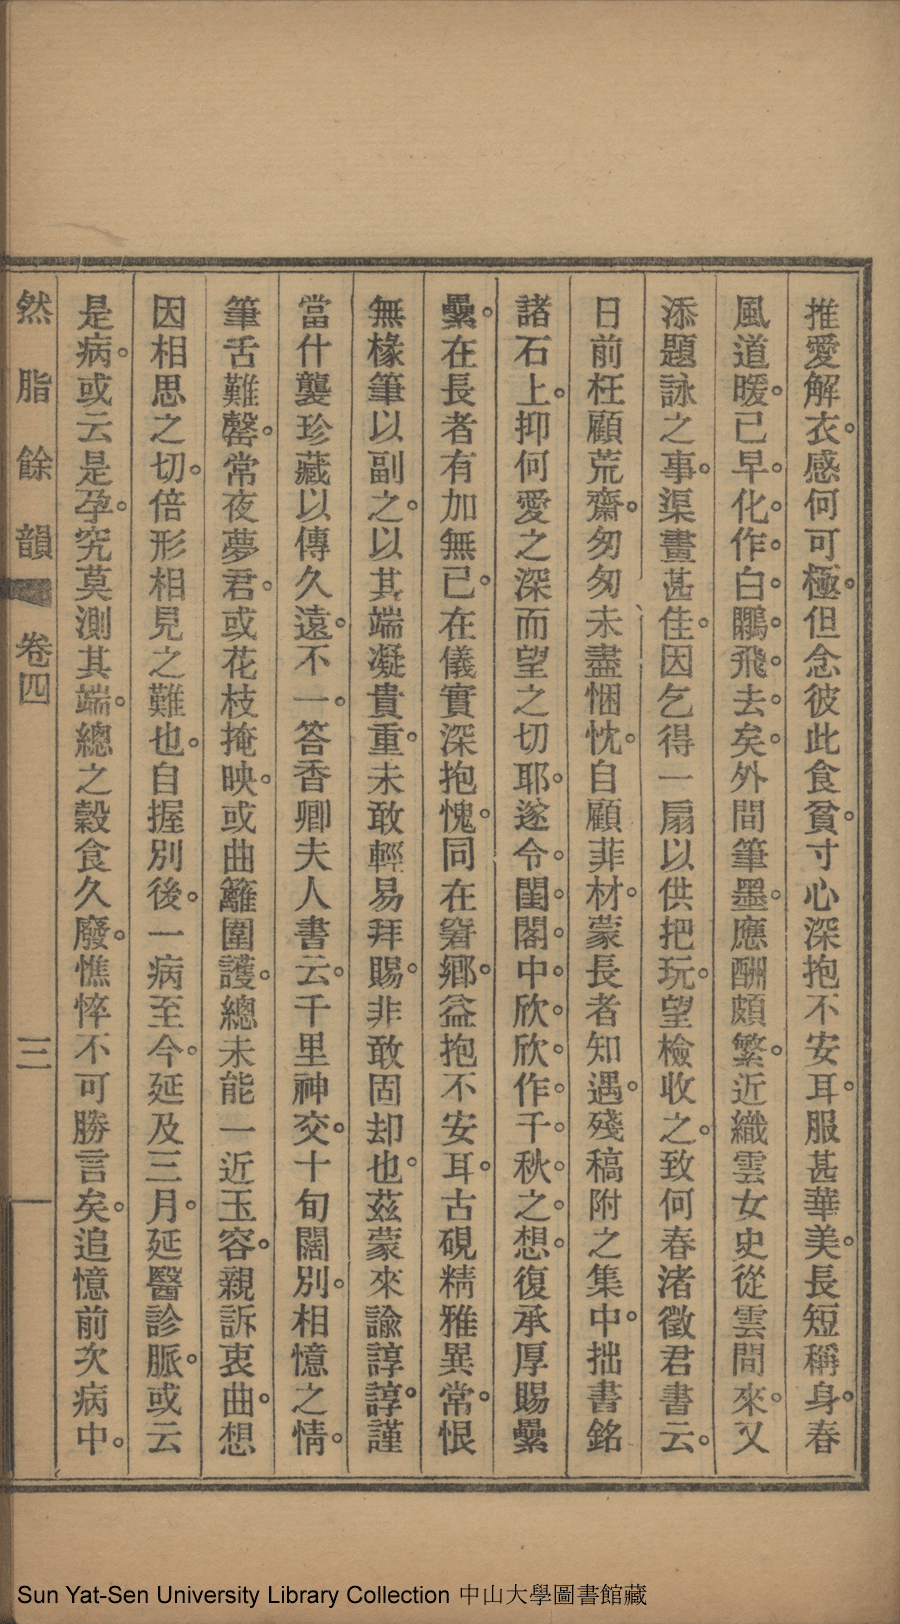 推愛解衣。感何可極。但念彼此食貧。寸心深抱不安耳。服甚華美。長短稱身。春
風道暖。已早。化。作。白。鷳。飛。去。矣。外間筆墨。應酬頗繁。近織雲女史從雲間來。又
添題詠之事。渠畫甚佳。因乞得一扇以供把玩。望檢收之。致何春渚徵君書云。
日前枉顧荒齋。匆匆未盡悃忱。自顧菲材。蒙長者知遇。殘稿附之集中。拙書銘
諸石上。抑何愛之深而望之切耶。遂令。閨。閣。中。欣。欣。作。千。秋。之。想。復承厚賜纍
纍。在長者有加無已。在儀實深抱愧。同在窘鄉。益抱不安耳。古硯精雅異常。恨
無椽筆以副之。以其端凝貴重。未敢輕易拜賜。非敢固却也。茲蒙來諭諄諄。謹
當什襲珍藏以傳久遠。不一。答香卿夫人書云。千里神交。十旬闊別。相憶之情。
筆舌難罄。常夜夢君。或花枝掩映。或曲籬圍護。總未能一近玉容。親訴衷曲。想
因相思之切。倍形相見之難也。自握別後。一病至今。延及三月。延醫診脈。或云
是病。或云是孕。究莫測其端。總之穀食久廢。憔悴不可勝言矣。追憶前次病中。
然脂餘韻 卷四 三
Sun Yat-Sen University Library Collection 中山大學圖書館藏